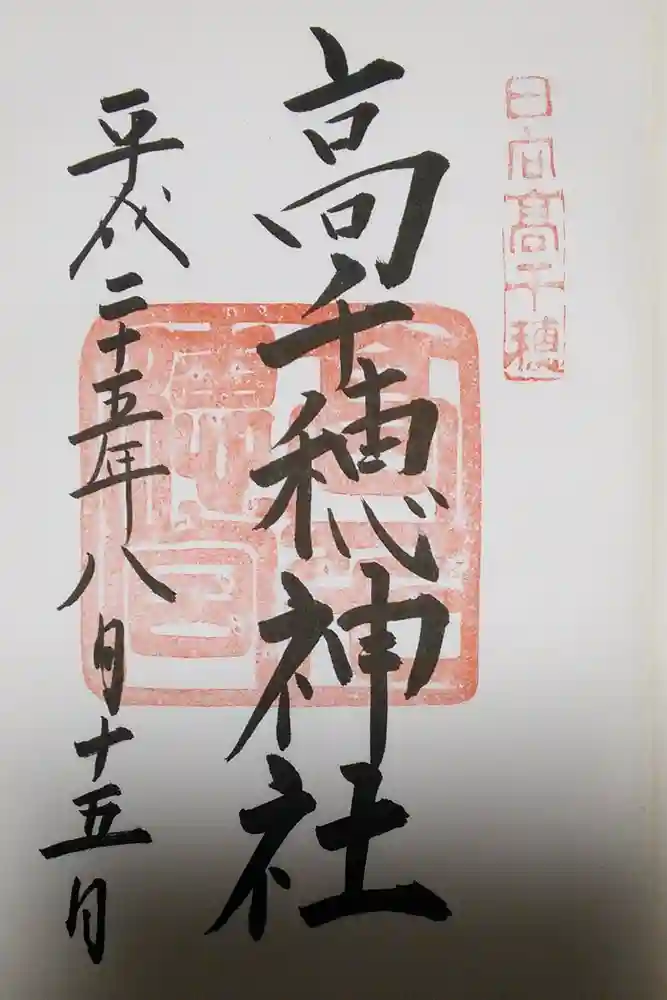 日向高千穂
高千穂神社
平成二十五年八月十五日